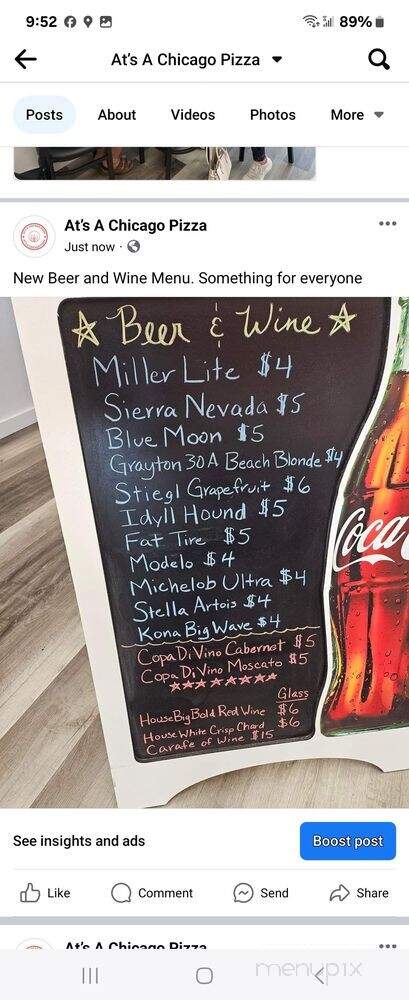 9:52 89%
At's A Chicago Pizza
Posts About Videos Photos More
At's A Chicago Pizza
Just now ·
New Beer and Wine Menu. Something for everyone
Beer & Wine
Miller Lite $4
Sierra Nevada $5
Blue Moon $5
Grayton 30A Beach Blonde $4
Stiegl Grapefruit $6
Idyll Hound $5
Fat Tire $5
Modelo $4
Michelob Ultra $4
Stella Artois $4
Kona Big Wave $4
Copa Di Vino Cabernet $5
Copa Di Vino Moscato $5
Glass
House Big Bold Red Wine $6
House White Crisp Chard $6
Carafe of Wine $15
Coca
See insights and ads Boost post
Like Comment Send Share
At's A Chicago Pizza
menupix